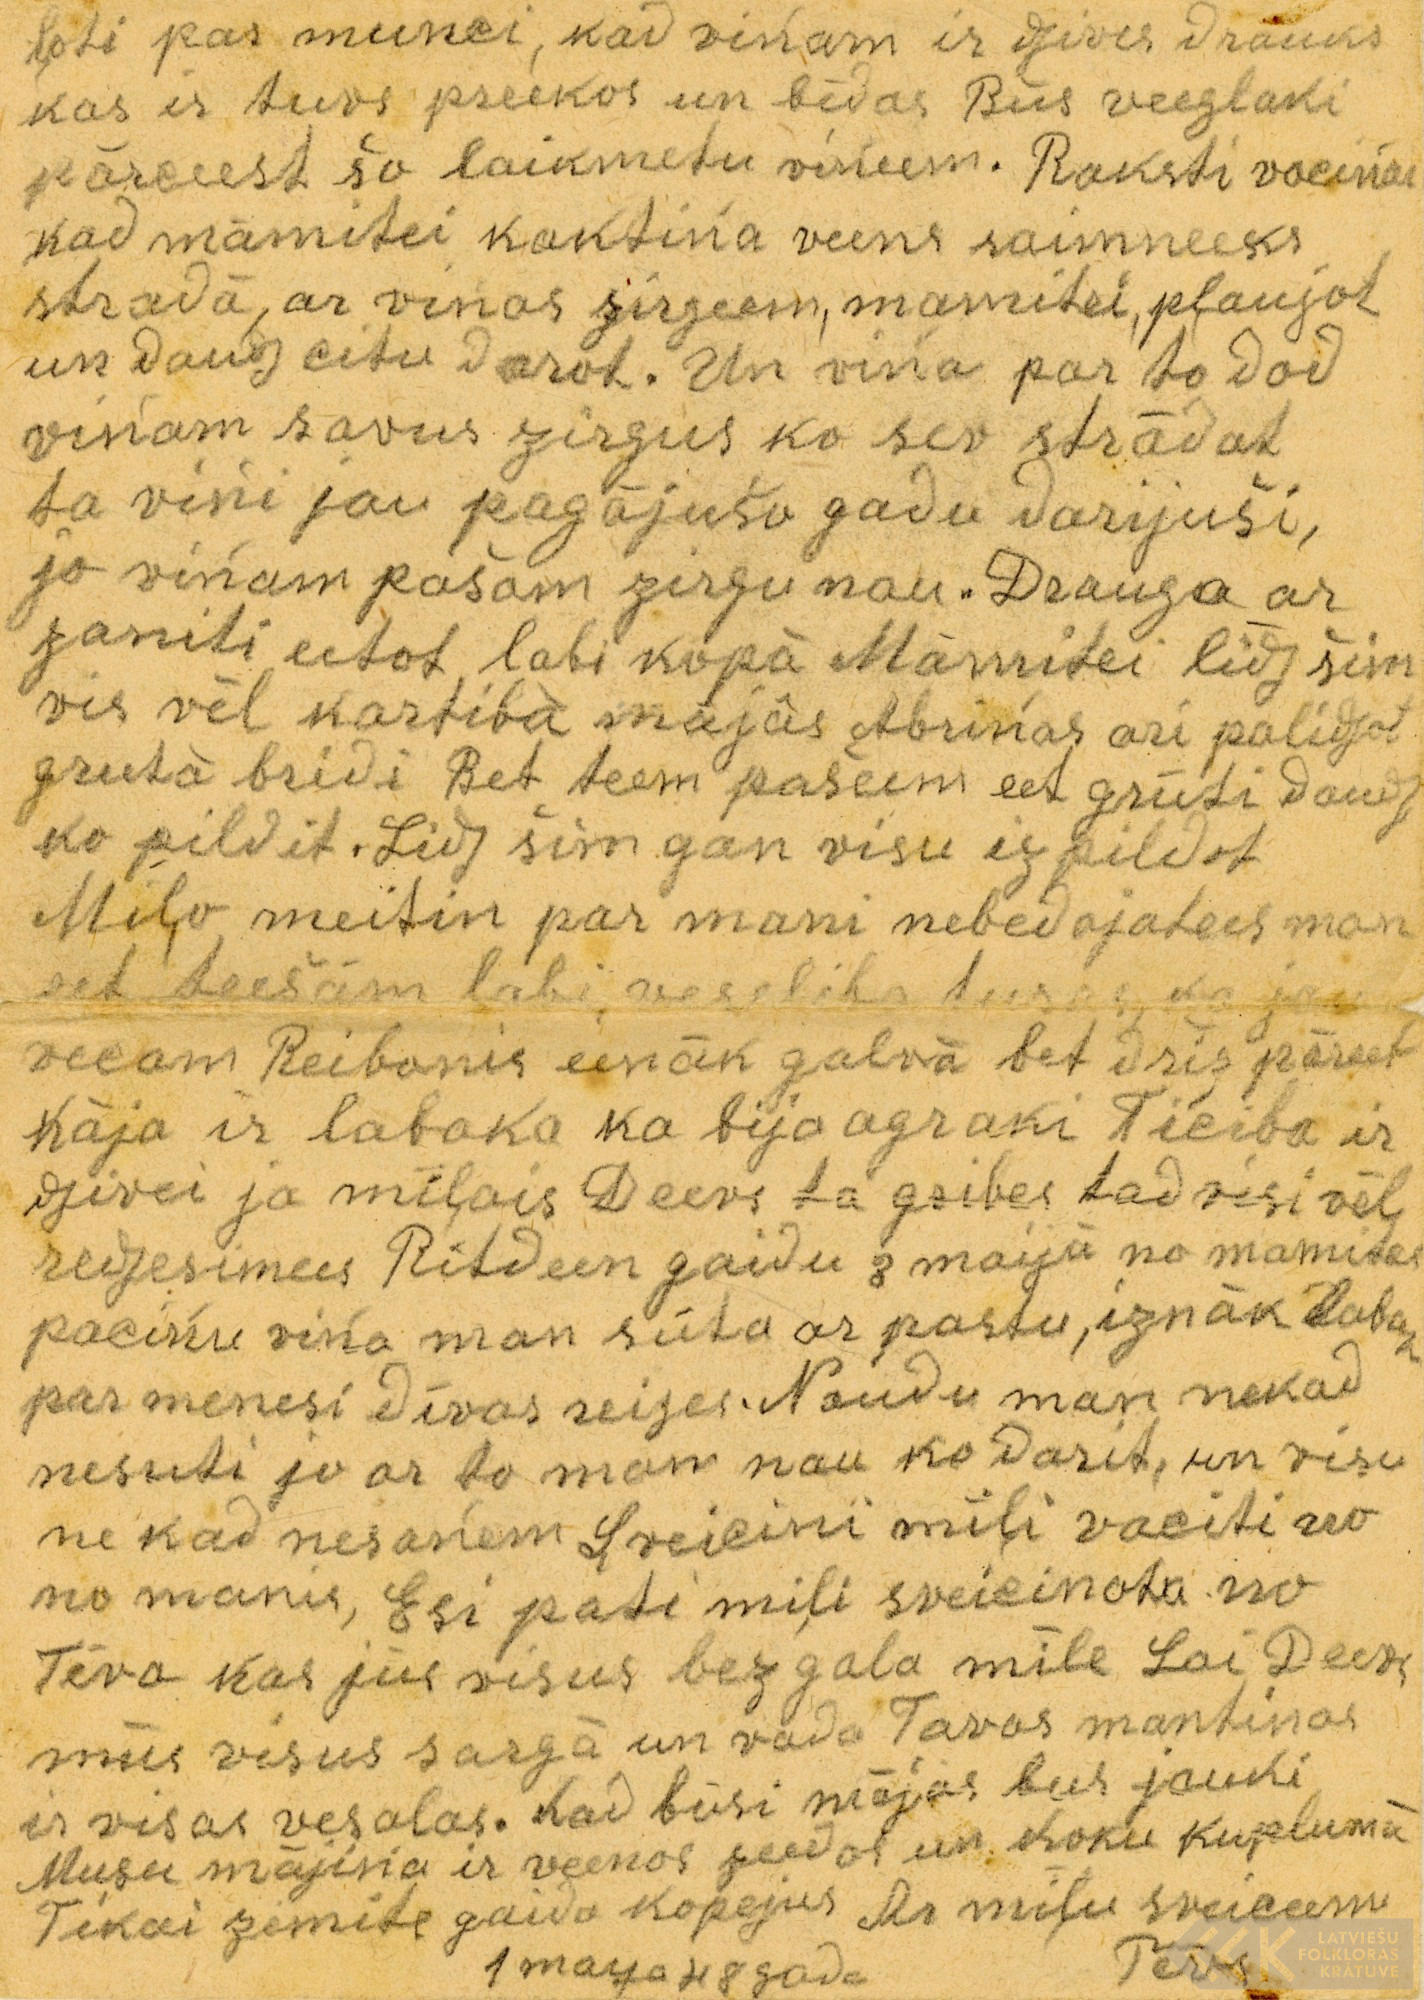 ļoti pas munci, kad viņam ir dzives drauks
kas ir tuvs preekos un bēdas Būs veeglaki
pārceest šo laikmetu viņeem. Raksti vaciņai
kad māmitei kaktiņa veens saimneeks
stradā, ar viņas zirgeem, mamitei, pļaujot
un daudz citu darot. Un viņa par to dod
viņam savus zirgus ko sev strādat
ta viņi jau pagājušo gadu darijuši,
jo viņam pašam zirgu nau. Drauga ar
zaniti eetot labi kopā Māmitei lidz šim
vis vēl kartibā mājās Abriņas ari palidzot
grutā bridi Bet teem pašeem eet grūti daudz
ko pildit. Lidz šim gan visu izpildot
Miļo meitin par mani nebedajatees man
eet teešām labi, veseliba turas, ka jau
vecam Reibonis eenāk galvā bet drīz pāreet
Kāja ir labaka ka bija agraki Ticiba ir
dzivei ja mīļais Deevs ta gribes tad visi vēļ
redzesimees Ritdeen gaidu 3 maijā no mamites
paciņu viņa man sūta ar pastu, iznāk labax
par menesi divas reizes. Naudu man nekad
nesuti jo ar to man nau ko darit, un visu
ne kad nesaņem Sveiciņi mīļi vaciti no
no manis, Esi pati miļi sveicinota no
Tēva kas jūs visus bezgala mīle Lai Deevs
mūs visus sargā un vada Tavas mantiņas
ir visas vesalas. Kad būsi mājas bus jauki
Musu mājiņa ir veenos zeedos un koku kuplumā
Tikai zemite gaida kopejus Ar miļu sveiceenu
1 maya 48 gada Tēvs
LATVIEŠU
FOLKLORAS
KRĀTUVE